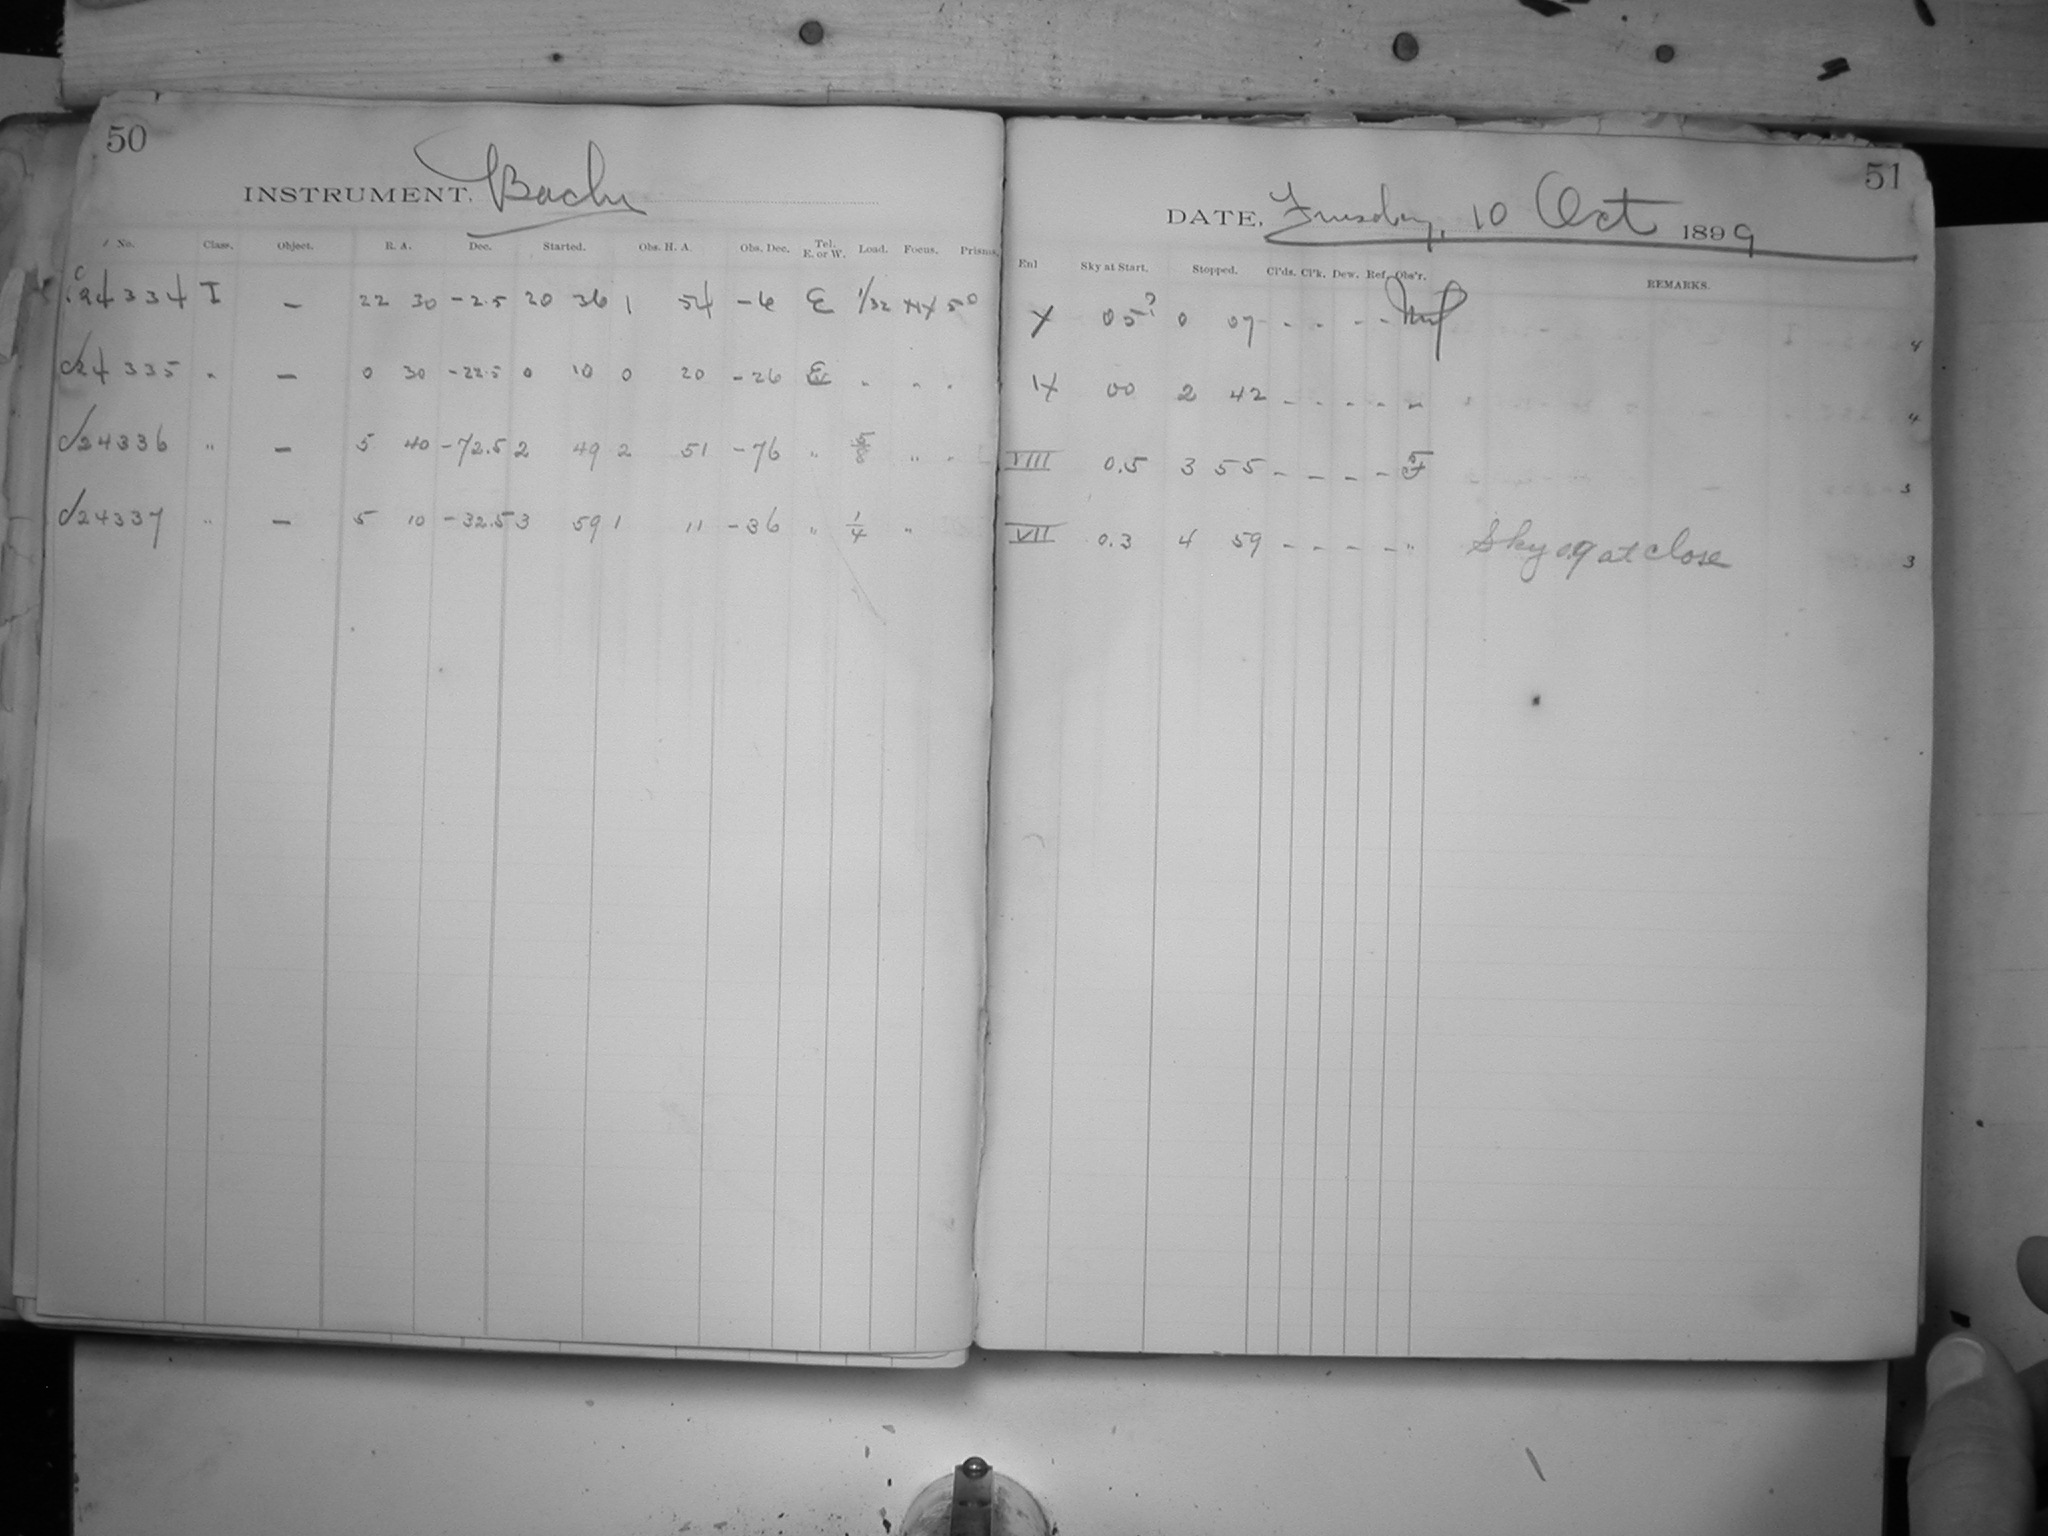 50
INSTRUMENT. Bache
No. Class. Object. R. A. Dec. Started. Obs. H. A. Obs. Dec. Tel. E. or W. Load. Focus. Prisms.
24334 I — 22 30 -2.5 20 36 1 54 -6 E 1/32 50
24335 " — 0 30 -22.5 0 10 0 20 -26 " " "
24336 " — 5 40 -72.5 2 49 2 51 -76 " 5/8 " "
24337 " — 5 10 -32.5 3 59 1 11 -36 " 1/4 "
51
DATE, Tuesday, 10 Oct 1899
Enl Sky at Start. Stopped. Cl'ds. Cl'k. Dew. Ref. Obs'r. REMARKS.
X 05? 0 07 - - - - 4
IX 00 2 42 - - - - " 4
VIII 0.5 3 55 - - - - F 3
VII 0.3 4 59 - - - - " Sky 0.9 at close 3